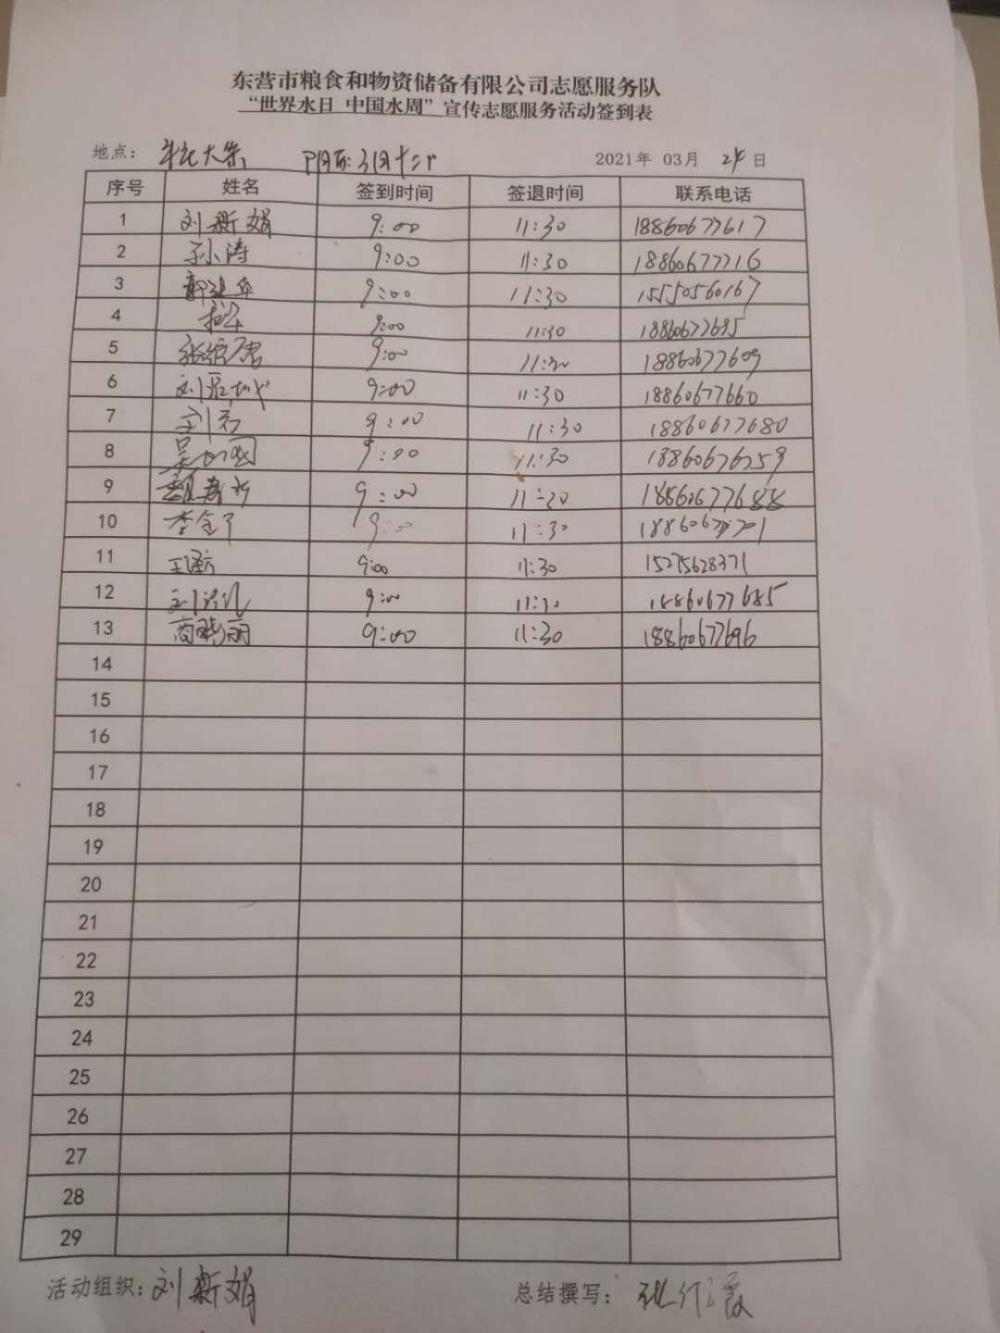 东营市粮食和物资储备有限公司志愿服务队
“世界水日 中国水周”宣传志愿服务活动签到表
地点： 2021年 03月 24日
序号 姓名 签到时间 签退时间 联系电话
1 刘新娟 9:00 11:30 18860677617
2 孙涛 9:00 11:30 18860677716
3 9:00 11:30 15550560167
4 9:00 11:30 18860677695
5 9:00 11:30 18860677609
6 9:00 11:30 18860677660
7 9:00 11:30 18860677680
8 9:00 11:30
9 9:00
10 9:00 11:30
11 9:00 11:30 15275628371
12 9:00 11:30 18860677685
13 商晓丽 9:00 11:30 18860677696
14
15
16
17
18
19
20
21
22
23
24
25
26
27
28
29
活动组织：刘新娟 总结撰写：